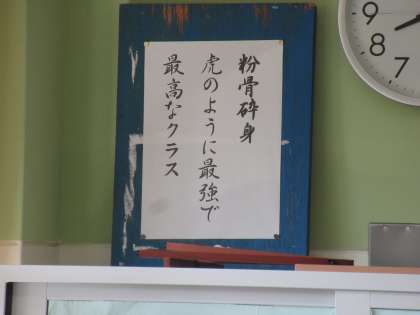 粉骨砕身
虎のように最強で
最高なクラス
9
8
7